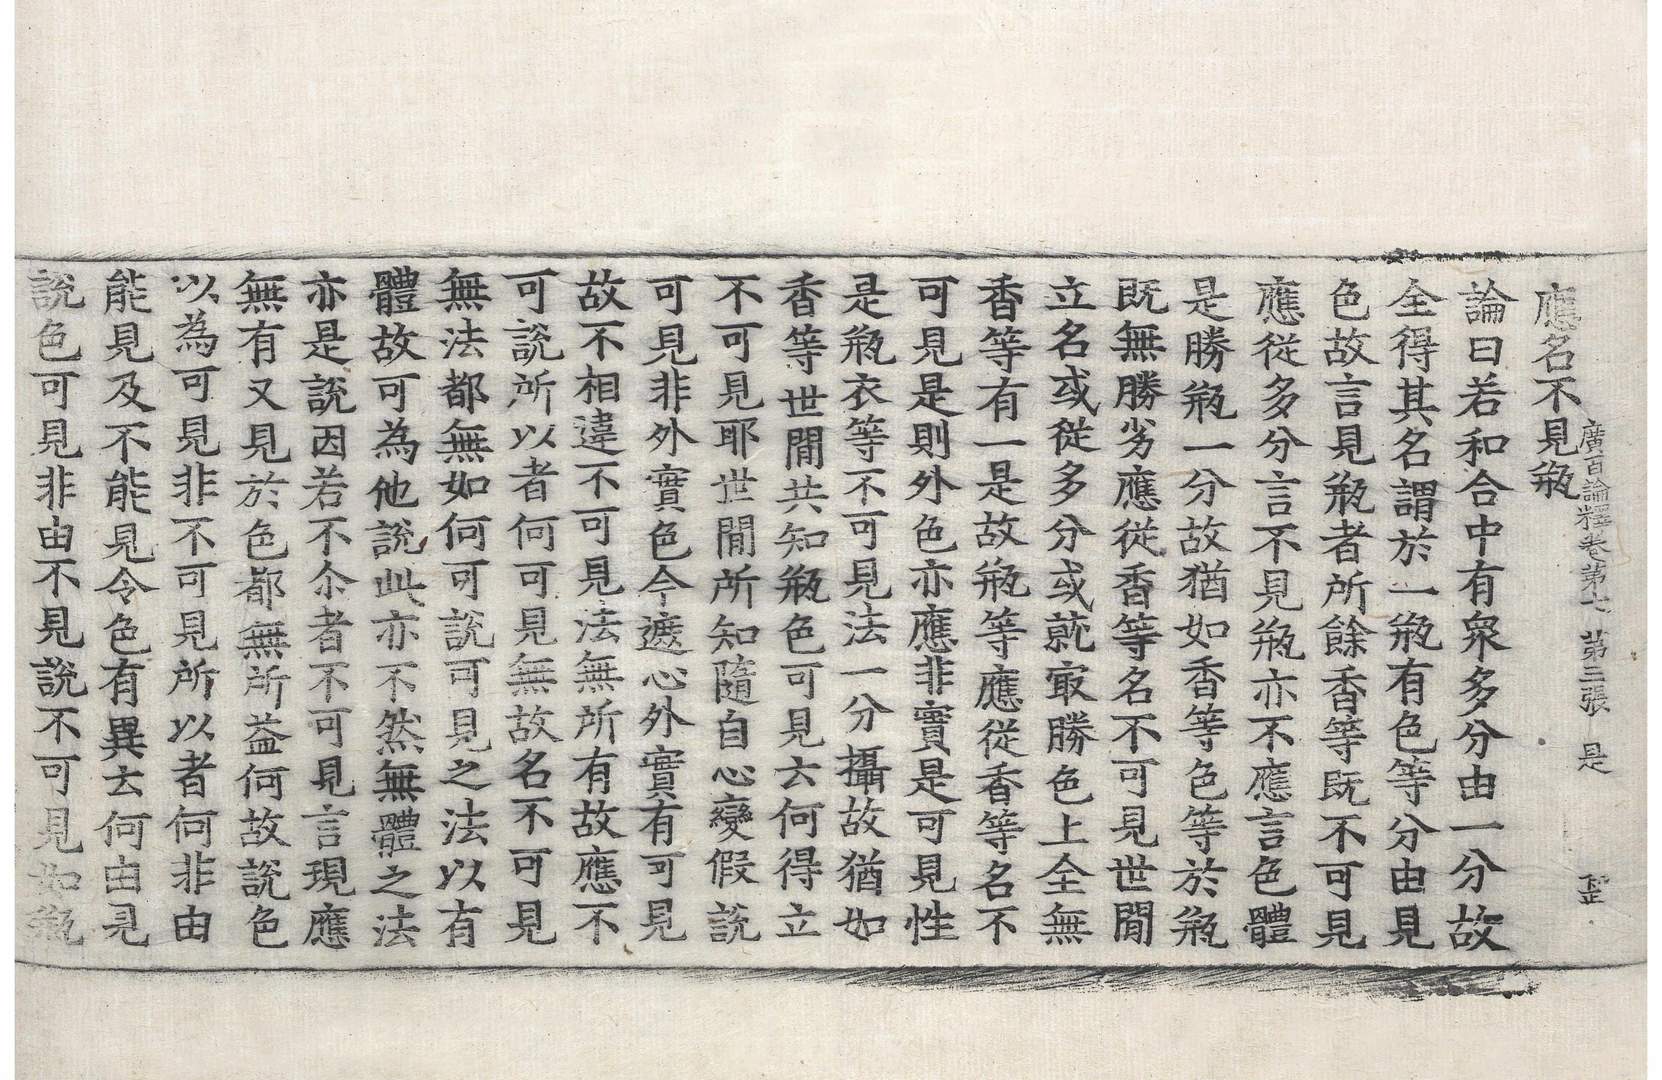 廣百論釋卷第七　第三張　是
應名不見瓶
論曰若和合中有衆多分由一分故
全得其名謂於一瓶有色等分由見
色故言見瓶者所餘香等既不可見
應從多分言不見瓶亦不應言色體
是勝瓶一分故猶如香等色等於瓶
既無勝劣應從香等名不可見世間
立名或從多分或就冣勝色上全無
香等有一是故瓶等應從香等名不
可見是則外色亦應非實是可見性
是瓶衣等不可見法一分攝故猶如
香等世間共知瓶色可見云何得立
不可見耶世間所知隨自心變假說
可見非外實色今遮心外實有可見
故不相違不可見法無所有故應不
可說所以者何可見無故名不可見
無法都無如何可說可見之法以有
體故可為他說此亦不然無體之法
亦是說因若不尒者不可見言現應
無有又見於色都無所益何故說色
以為可見非不可見所以者何非由
能見及不能見令色有異云何由見
說色可見非由不見說不可見如瓶